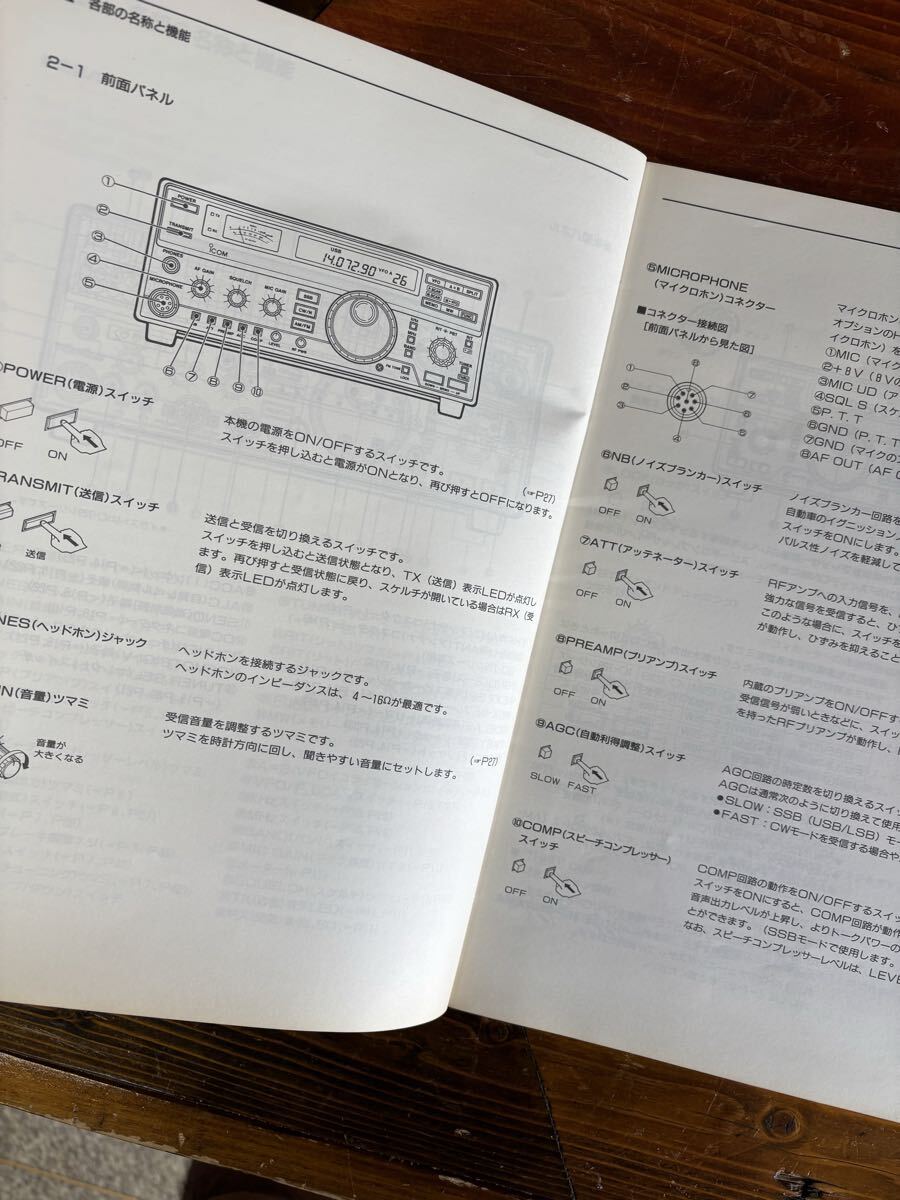 各部の名称と機能
2-1 前面パネル
①
②
③
④
⑤
POWER
TRANSMIT
PHONES
MICROPHONE
AF GAIN
SQUELCH
MIC GAIN
ICOM
USB
14.072.90
VFO A
26
SSB
CW/N
AM/FM
VFO
A=B
SPLIT
RIT
PBT
LEVEL
RF PWR
LOCK
⑥ ⑦ ⑧ ⑨ ⑩
POWER(電源)スイッチ
OFF ON
本機の電源をON/OFFするスイッチです。
スイッチを押し込むと電源がONとなり、再び押すとOFFになります。
(☞P27)
RANSMIT(送信)スイッチ
送信
送信と受信を切り換えるスイッチです。
スイッチを押し込むと送信状態となり、TX(送信)表示LEDが点灯し
ます。再び押すと受信状態に戻り、スケルチが開いている場合はRX(受
信)表示LEDが点灯します。
NES(ヘッドホン)ジャック
ヘッドホンを接続するジャックです。
ヘッドホンのインピーダンスは、4〜16Ωが最適です。
IN(音量)ツマミ
音量が
大きくなる
受信音量を調整するツマミです。
ツマミを時計方向に回し、聞きやすい音量にセットします。
(☞P27)
⑤MICROPHONE
(マイクロホン)コネクター
■コネクター接続図
[前面パネルから見た図]
①
②
③
④
⑤
⑥
⑦
⑧
マイクロホン
オプションのH
イクロホン)を
①MIC(マイク
②+8V(8Vの
③MIC UD(ア
④SQL S(スケ
⑤P.T.T
⑥GND(P.T.T
⑦GND(マイクの
⑧AF OUT(AF
⑥NB(ノイズブランカー)スイッチ
OFF ON
ノイズブランカー回路を
自動車のイグニッション
スイッチをONにします。
パルス性ノイズを軽減して
⑦ATT(アッテネーター)スイッチ
OFF ON
RFアンプへの入力信号を、
強力な信号を受信すると、ひず
このような場合に、スイッチを
が動作し、ひずみを抑えること
⑧PREAMP(プリアンプ)スイッチ
OFF ON
内蔵のプリアンプをON/OFFする
受信信号が弱いときなどに、スイッ
を持ったRFプリアンプが動作し、
⑨AGC(自動利得調整)スイッチ
SLOW FAST
AGC回路の時定数を切り換えるスイッ
AGCは通常次のように切り換えて使用
●SLOW:SSB(USB/LSB)モー
●FAST:CWモードを受信する場合や
⑩COMP(スピーチコンプレッサー)
スイッチ
OFF ON
COMP回路の動作をON/OFFするスイッ
スイッチをONにすると、COMP回路が動作
音声出力レベルが上昇し、よりトークパワーの
とができます。(SSBモードで使用します。
なお、スピーチコンプレッサーレベルは、LEVE